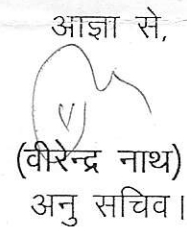 आज्ञा से,
(वीरेन्द्र नाथ)
अनु सचिव।